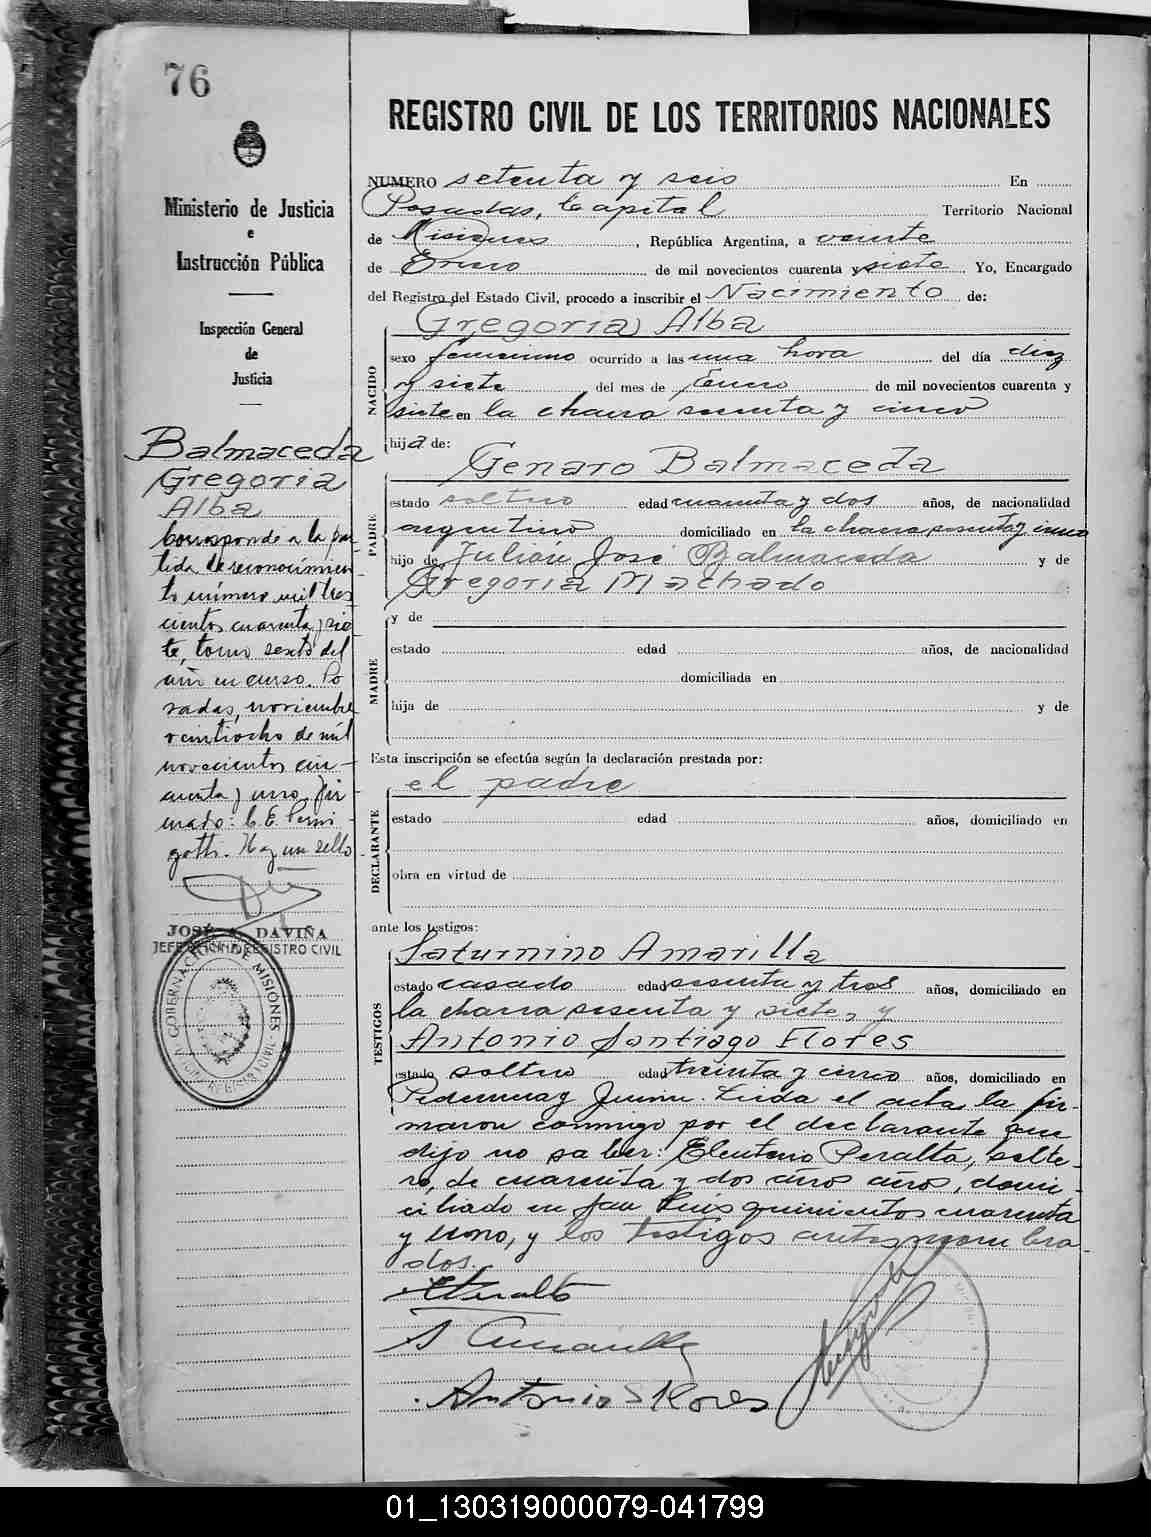 76
Ministerio de Justicia
e
Instrucción Pública
Inspección General
de
Justicia
Balmaceda
Gregoria
Alba
Corresponde a la par
tida de reconocimien
to número mil tres
cientos cuarenta y sie
te, tomo sexto del
año en curso. Po
sadas, noviembre
veintiocho de mil
novecientos cin-
cuenta y uno. Fir
mado: C. E. Perni-
gotti. Hay un sello
JOSÉ A. DAVIÑA
JEFE REGISTRO CIVIL
GOBERNACION DE MISIONES
REGISTRO CIVIL DE LOS TERRITORIOS NACIONALES
NUMERO setenta y seis En
Posadas, Capital Territorio Nacional
de Misiones, República Argentina, a veinte
de Enero de mil novecientos cuarenta y siete. Yo, Encargado
del Registro del Estado Civil, procedo a inscribir el Nacimiento de:
NACIDO
Gregoria Alba
sexo femenino ocurrido a las una hora del día diez
y siete del mes de Enero de mil novecientos cuarenta y
siete en la chacra sesenta y cinco
hija de:
PADRE
Genaro Balmaceda
estado soltero edad cuarenta y dos años, de nacionalidad
argentino domiciliado en la chacra sesenta y cinco
hijo de Julian José Balmaceda y de
Gregoria Machado
MADRE
y de
estado edad años, de nacionalidad
domiciliada en
hija de y de
Esta inscripción se efectúa según la declaración prestada por:
DECLARANTE
el padre
estado edad años, domiciliado en
obra en virtud de
ante los testigos:
TESTIGOS
Saturnino Amarilla
estado casado edad sesenta y tres años, domiciliado en
la chacra sesenta y siete, y
Antonio Santiago Flores
estado soltero edad treinta y cinco años, domiciliado en
Pedernera y Junin. Leida el acta la fir-
maron conmigo por el declarante que
dijo no saber: Eleuterio Peralta, solte-
ro, de cuarenta y dos años años, domi-
ciliado en San Luis quinientos cuarenta
y uno, y los testigos antes nombra-
dos.
EPeralta
S Amarilla
Antonio S Flores
01_130319000079-041799